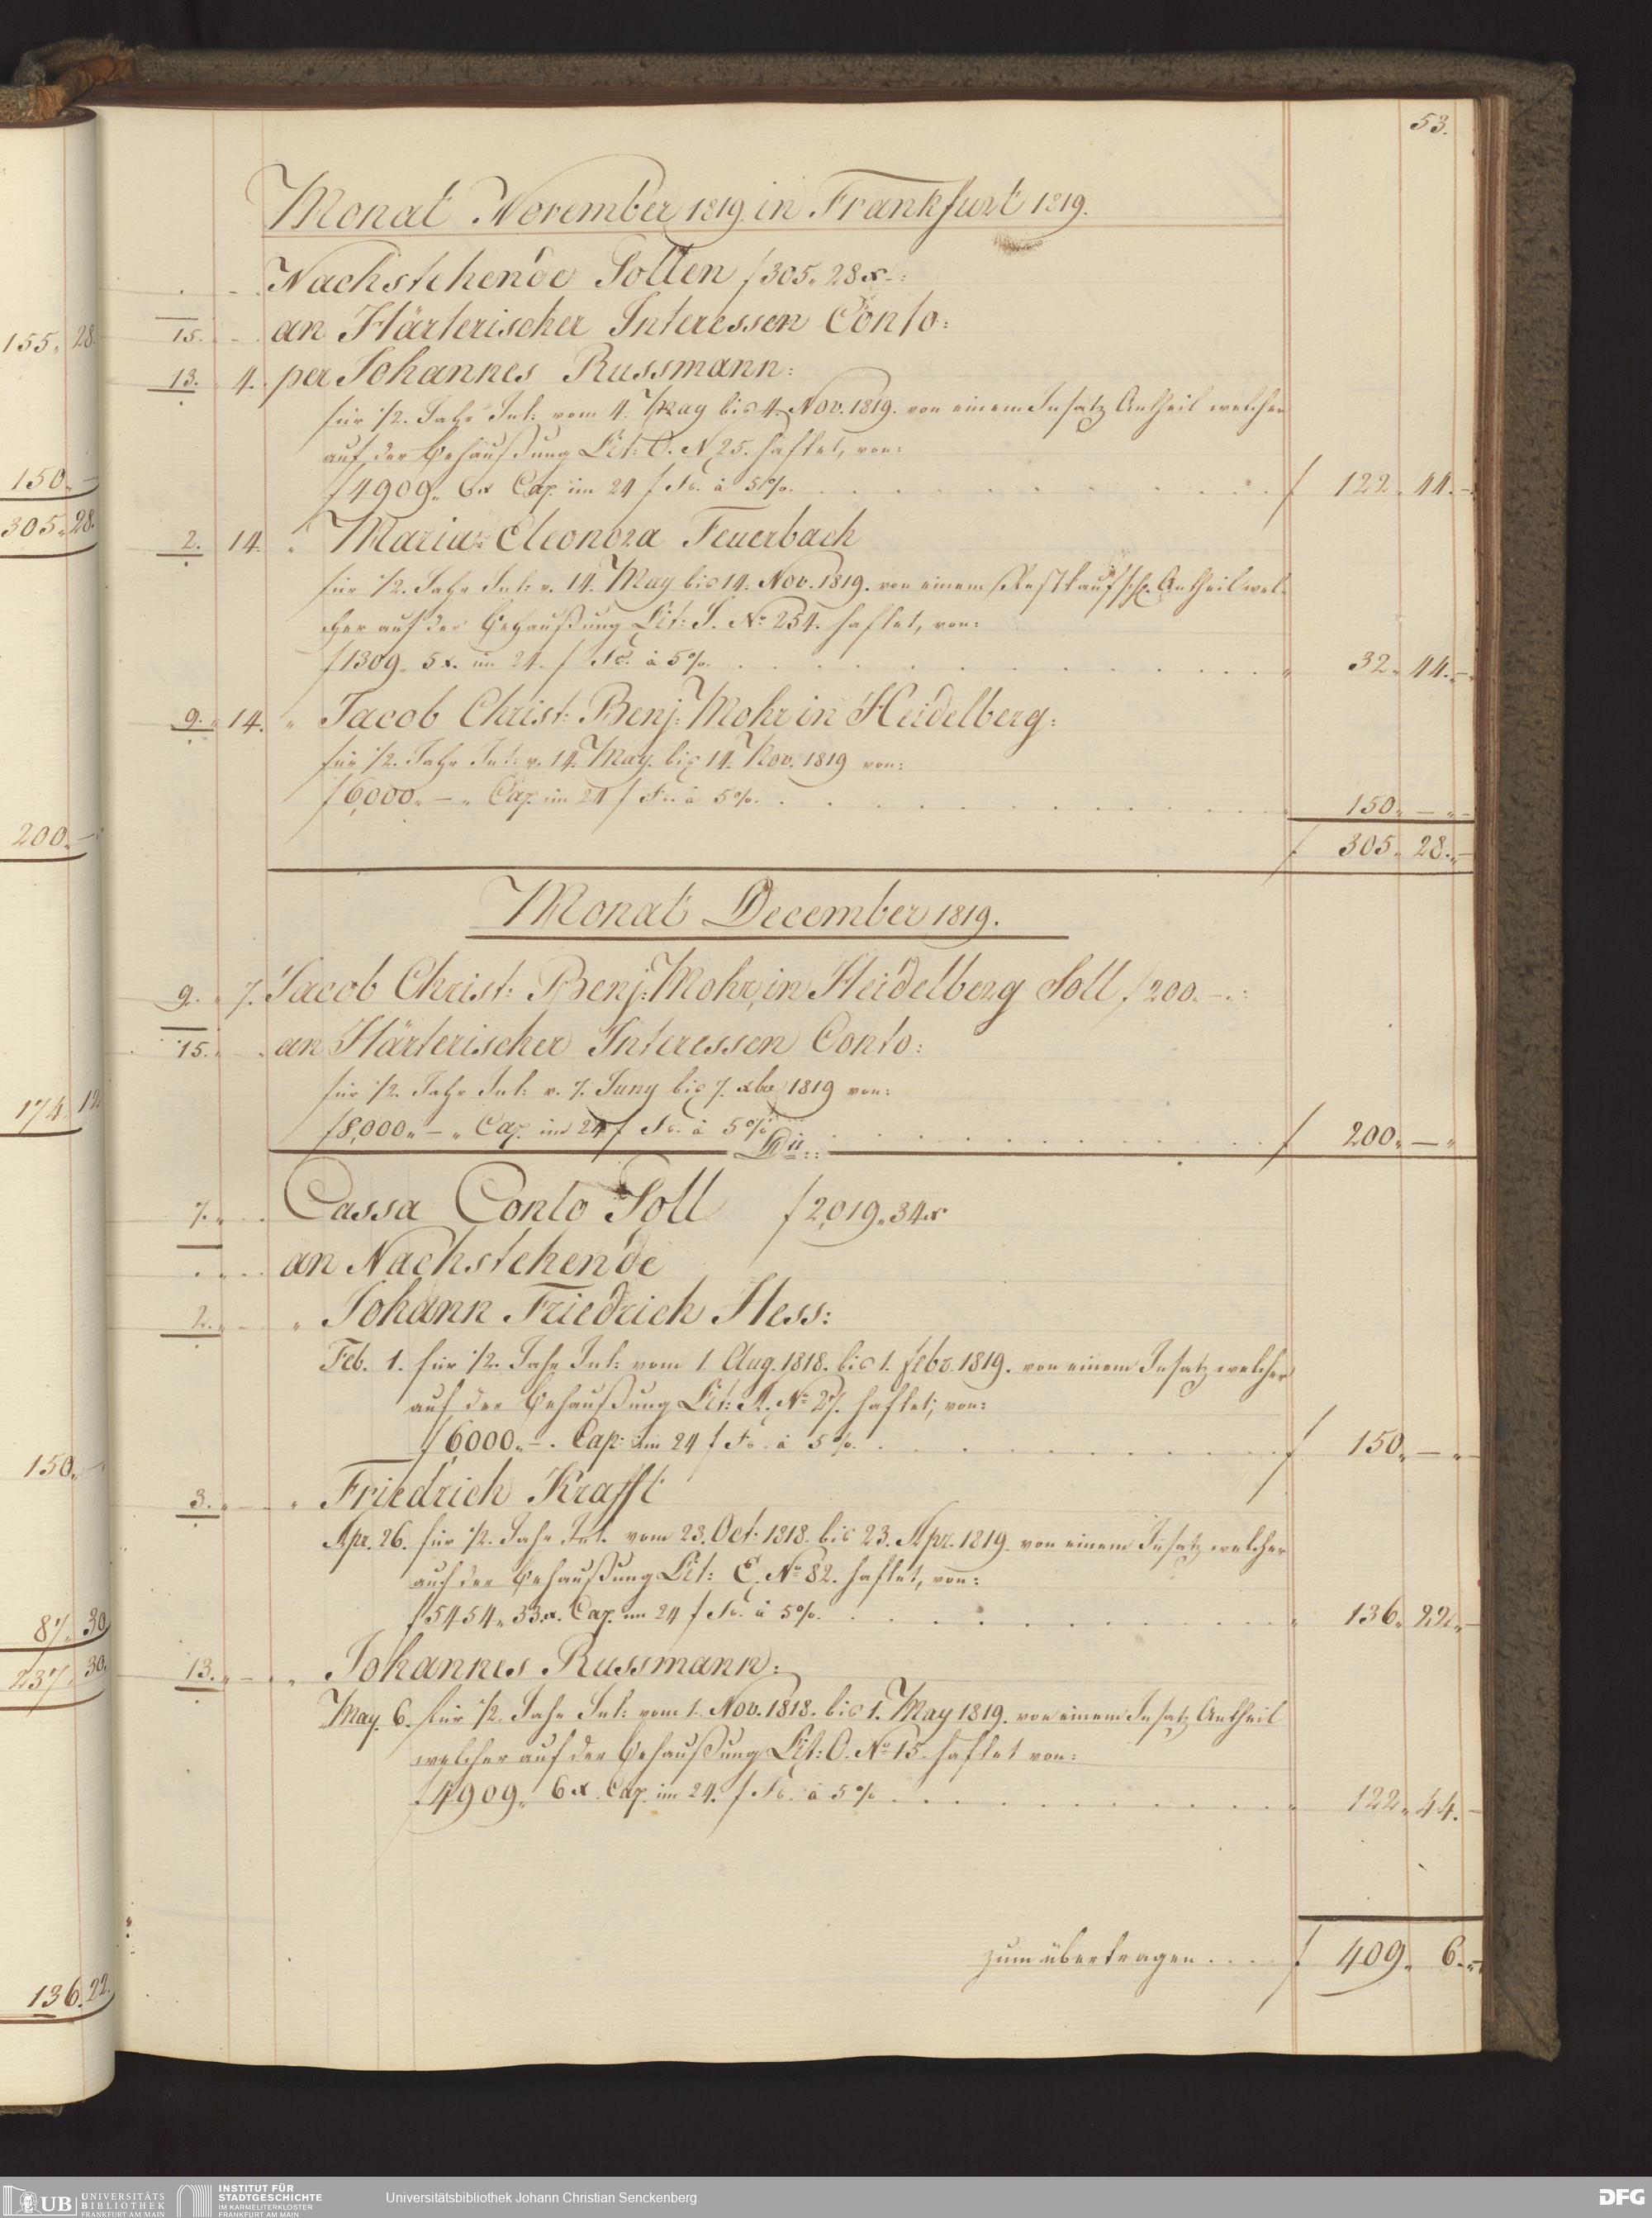 53.
Monat November 1819. in Frankfurt 1819.
Nachstehende Sollen f 305 „ 28 x -:
15. an Härterischer Interessen Conto:
13. 4. per Johannes Russmann:
für 1/2. Jahr Int: vom 4. May bis 4. Nov. 1819. von einem Insatz Antheil welcher
auf der Behaußung Lit: O. N 25. haftet, von:
f 4909 „ 6 x Cap. im 24 f Fs. à 5 %. f 122 „ 44. -
2. 14. „ Maria Eleonora Feuerbach
für 1/2. Jahr Int: v. 14. May bis 14. Nov. 1819. von einem Antheil wel-
cher auf der Behaußung Lit: J. No. 254. haftet, von:
f 1309 „ 5 x. im 24. f Fs. à 5 %. „ 32 „ 44. -
9. „ 14. „ Jacob Christ: Benj: Mohr in Heidelberg:
für 1/2. Jahr Int: v. 14. May. bis 14. Nov. 1819 von:
f 6,000 „ - „ Cap. im 24 f Fs. à 5 %. „ 150 „ - „ -
f 305 „ 28. „ -
Monat December 1819.
9. „ 7. Jacob Christ: Benj: Mohr, in Heidelberg Soll f 200. - „:
15. „ an Härterischer Interessen Conto:
für 1/2. Jahr Int: v. 7. Juny bis 7. xbr 1819 von:
f 8,000 „ - „ Cap. im 24 f Fs. à 5 % f 200 „ - „
7. „ Cassa Conto Soll f 2,019 „ 34 x
an Nachstehende
2. „ - „ Johann Friedrich Hess:
Feb. 1. für 1/2. Jahr Int: vom 1. Aug. 1818. bis 1. febr. 1819. von einem Insatz welcher
auf der Behaußung Lit: A. No. 27. haftet; von:
f 6000 „ - . Cap: im 24 f Fs. à 5 %. f 150 „ - „ -
3. „ - „ Friedrich Krafft
Apr. 26. für 1/2. Jahr Int. vom 23. Oct. 1818. bis 23. Apr. 1819. von einem Insatz welcher
auf der Behaußung Lit: E. No. 82. haftet, von:
f 5454 „ 33 x. Cap. im 24 f Fs. à 5 %. „ 136 „ 22 „ -
13. „ - „ Johannes Russmann:
May. 6. für 1/2. Jahr Int: vom 1. Nov. 1818. bis 1. May 1819. von einem Insatz Antheil
welcher auf der Behaußung Lit: O. No. 15. haftet von:
f 4909 „ 6 x. Cap. im 24. f Fs. à 5 % „ 122 „ 44. -
zum übertragen .... f 409 „ 6. „ -
155 „ 28.
150 „ -
305 „ 28.
200 „ -
174 „
150 „ -
87 „ 30
237 „ 30.
136. 22.
UB UNIVERSITÄTS
BIBLIOTHEK
FRANKFURT AM MAIN
INSTITUT FÜR
STADTGESCHICHTE
IM KARMELITERKLOSTER
FRANKFURT AM MAIN
Universitätsbibliothek Johann Christian Senckenberg
DFG